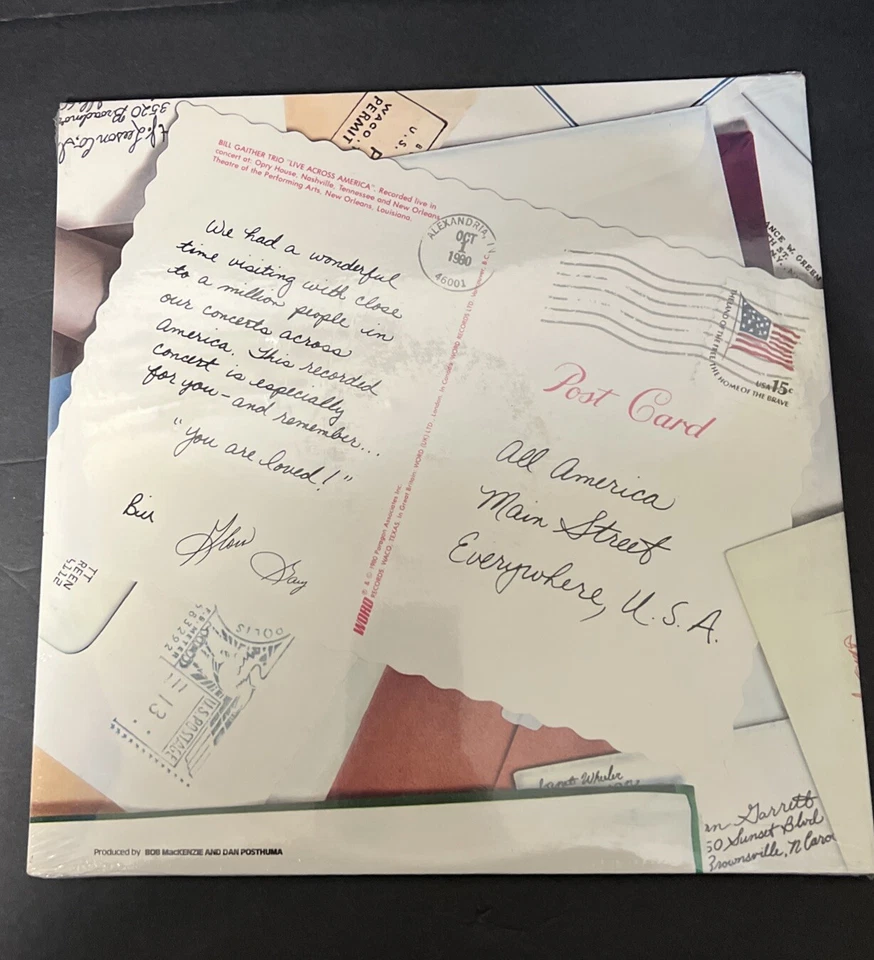 3520 Broadmoor
WACO
U.S. P
PERMIT
BILL GAITHER TRIO "LIVE ACROSS AMERICA". Recorded live in
concert at: Opry House, Nashville, Tennessee and New Orleans
Theatre of the Performing Arts, New Orleans, Louisiana.
We had a wonderful
time visiting with close
to a million people in
our concerts across
America. This recorded
concert is especially
for you - and remember...
"You are loved!"
Bill
Glori
Gary
ALEXANDRIA, I
OCT
1
1980
46001
ANCE W. GREEN
H ST.
N.Y.
THE LAND OF THE FREE THE HOME OF THE BRAVE
USA 15c
Post Card
All America
Main Street
Everywhere, U.S.A.
WORD ℗ & © 1980 Paragon Associates Inc.
RECORDS, WACO, TEXAS. In Great Britain: WORD (UK) LTD., London. In Canada: WORD RECORDS LTD. Vancouver, B.C.
TEN
REE
5112
OLIS
P.B. METER
583292
11 13
U.S. POSTAGE
Wheeler
en Garrett
50 Sunset Blvd
Brownsville, N. Caro
Produced by BOB MacKENZIE AND DAN POSTHUMA